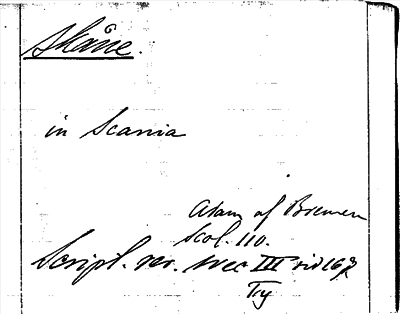 Skåne.
in Scania
Adam of Bremen
Scol. 110.
Script. rer. svec III sid 16
Try